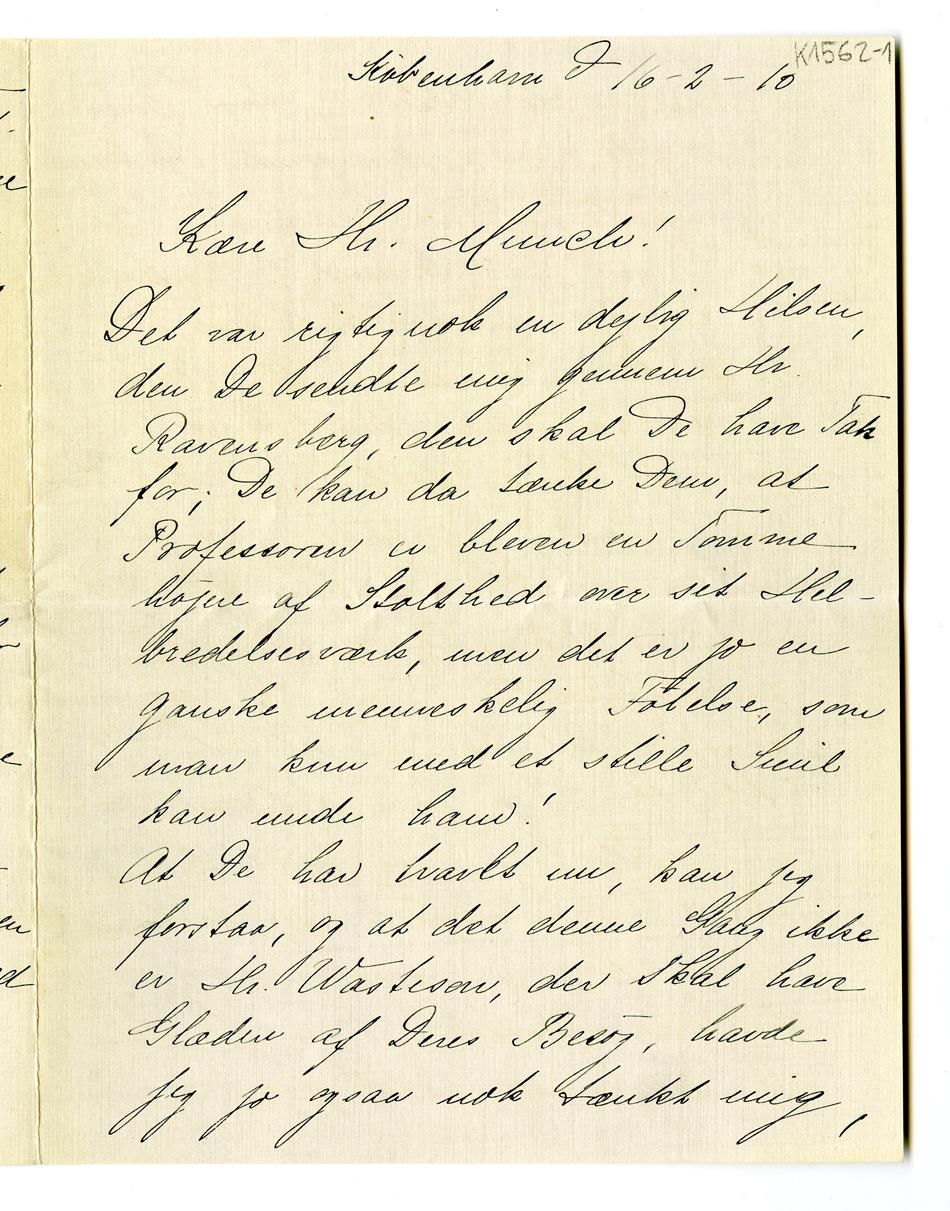 K1562-1
København d 16-2-10
Kære Hr. Munch!
Det var rigtignok en dejlig Hilsen,
den De sendte mig gennem Hr.
Ravensberg, den skal De have Tak
for; De kan da tænke Dem, at
Professoren er bleven en Tomme
højere af Stolthed over sit Hel-
bredelsesværk, men det er jo en
ganske menneskelig Følelse, som
man kun med et stille Smil
kan unde ham!
At De har travlt nu, kan jeg
forstaa, og at det denne Gang ikke
er Hr. Wasteson, der skal have
Glæden af Deres Besøg, havde
jeg jo ogsaa nok tænkt mig,